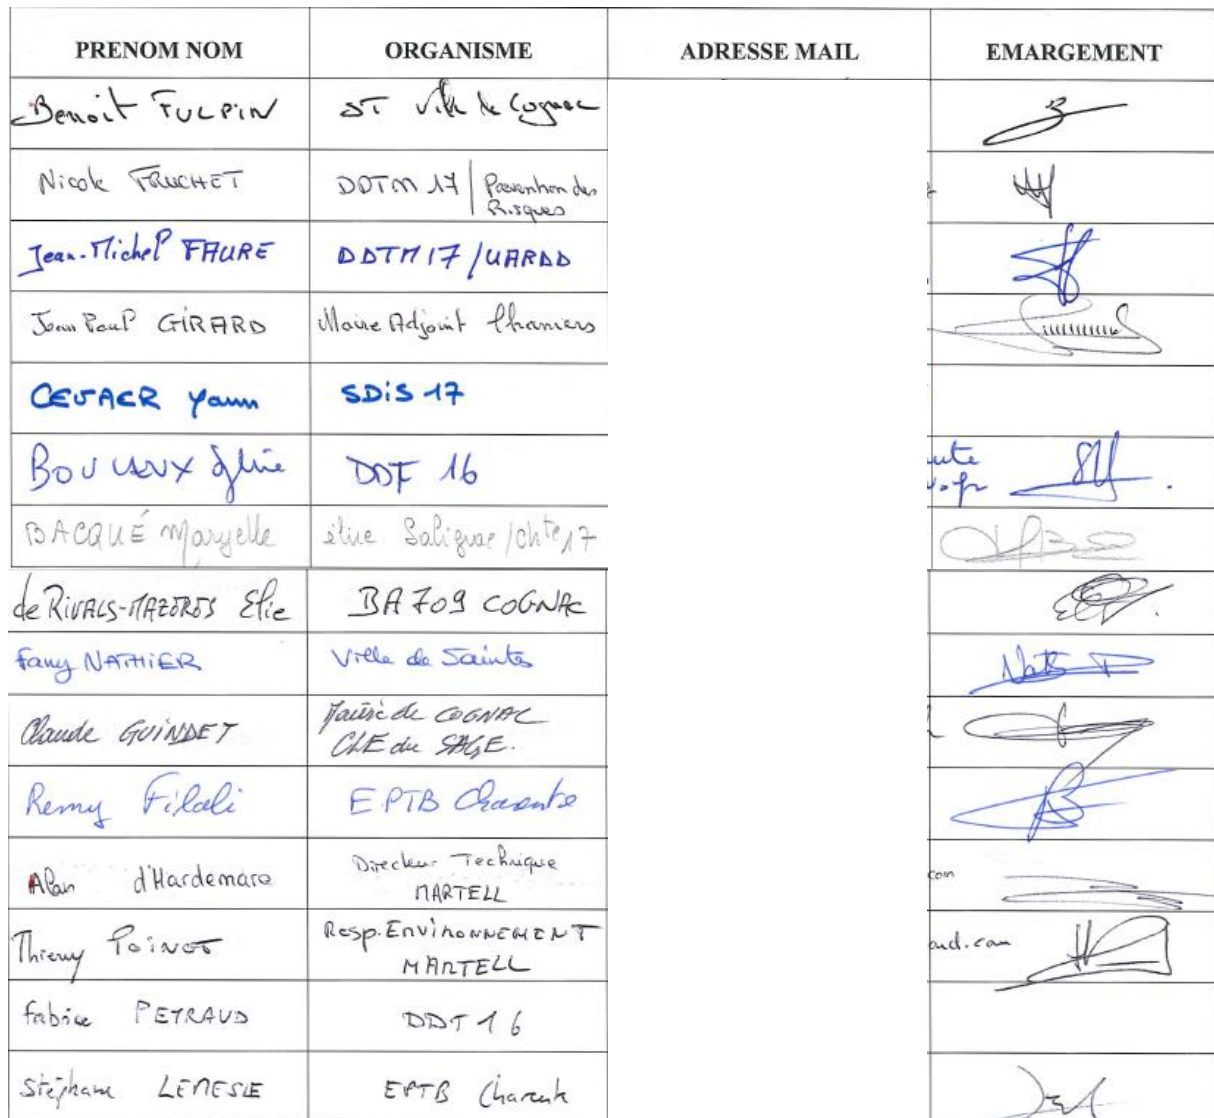 PRENOM NOM ORGANISME ADRESSE MAIL EMARGEMENT
Benoit FULPIN ST Ville de Cognac
Nicole FRUCHET DDTM 17 / Prévention des
Risques
Jean-Michel FAURE DDTM 17 / UARDD
Jean Paul GIRARD Maire Adjoint Chaniers
CEVAER Yann SDiS 17
BOUVANX DDT 16 ute
v.fr
BACQUÉ Maryelle élue Salignac / chte 17
de RIVALS-MAZERES Elie BA 709 COGNAC
Fany NATHIER Ville de Saintes
Claude GUINDET Mairie de COGNAC
CLE du SAGE.
Remy Filali EPTB Charente
Alain d'Hardemare Directeur Technique
MARTELL com
Thierry POINOT Resp. ENVIRONNEMENT
MARTELL aud.com
Fabrice PETRAUD DDT 16
Stéphane LEMESLE EPTB Charente